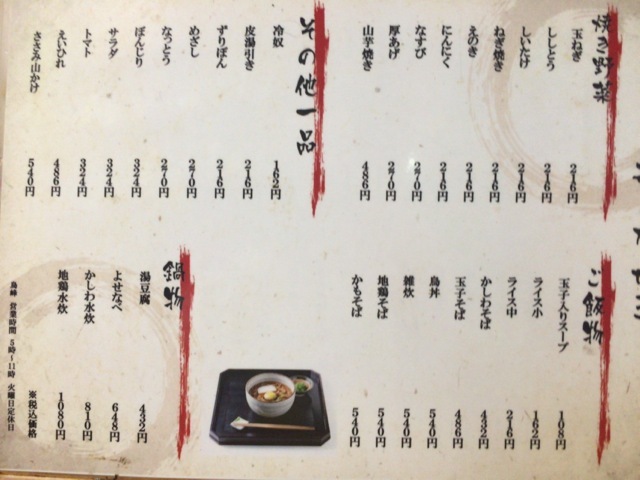 焼き野菜
玉ねぎ 216円
ししとう 216円
しいたけ 216円
ねぎ焼き 216円
えのき 216円
にんにく 216円
なすび 270円
厚あげ 270円
山芋焼き 486円
その他一品
冷奴 162円
皮湯引き 216円
ずりぽん 216円
めざし 270円
なっとう 270円
ぼんじり 324円
サラダ 324円
トマト 324円
えいひれ 486円
ささみ山かけ 540円
ご飯物
玉子入りスープ 108円
ライス小 162円
ライス中 216円
かしわそば 432円
玉子そば 486円
鳥丼 540円
雑炊 540円
地鶏そば 540円
かもそば 540円
鍋物
湯豆腐 432円
よせなべ 648円
かしわ水炊 810円
地鶏水炊 1080円
※税込価格
営業時間 5時〜11時 火曜日定休日